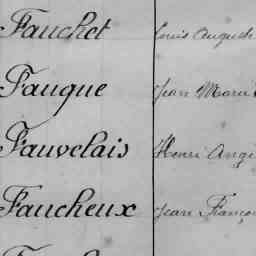 Fauchet Louis Auguste
Fauque Jean Marie
Fauvelais Henri Ange
Faucheux Jean Franço